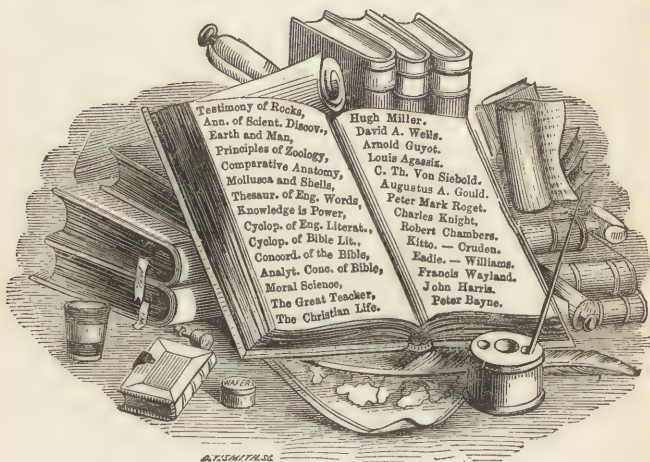 Testimony of Rocks,
Ann. of Scient. Discov.,
Earth and Man,
Principles of Zoology,
Comparative Anatomy,
Mollusca and Shells,
Thesaur. of Eng. Words,
Knowledge is Power,
Cyclop. of Eng. Literat.,
Cyclop. of Bible Lit.,
Concord. of the Bible,
Analyt. Conc. of Bible,
Moral Science,
The Great Teacher,
The Christian Life.
Hugh Miller.
David A. Wells.
Arnold Guyot.
Louis Agassiz.
C. Th. Von Siebold.
Augustus A. Gould.
Peter Mark Roget.
Charles Knight.
Robert Chambers.
Kitto. — Cruden.
Eadie. — Williams.
Francis Wayland.
John Harris.
Peter Bayne.
WAFER
D.T. SMITH. SC.